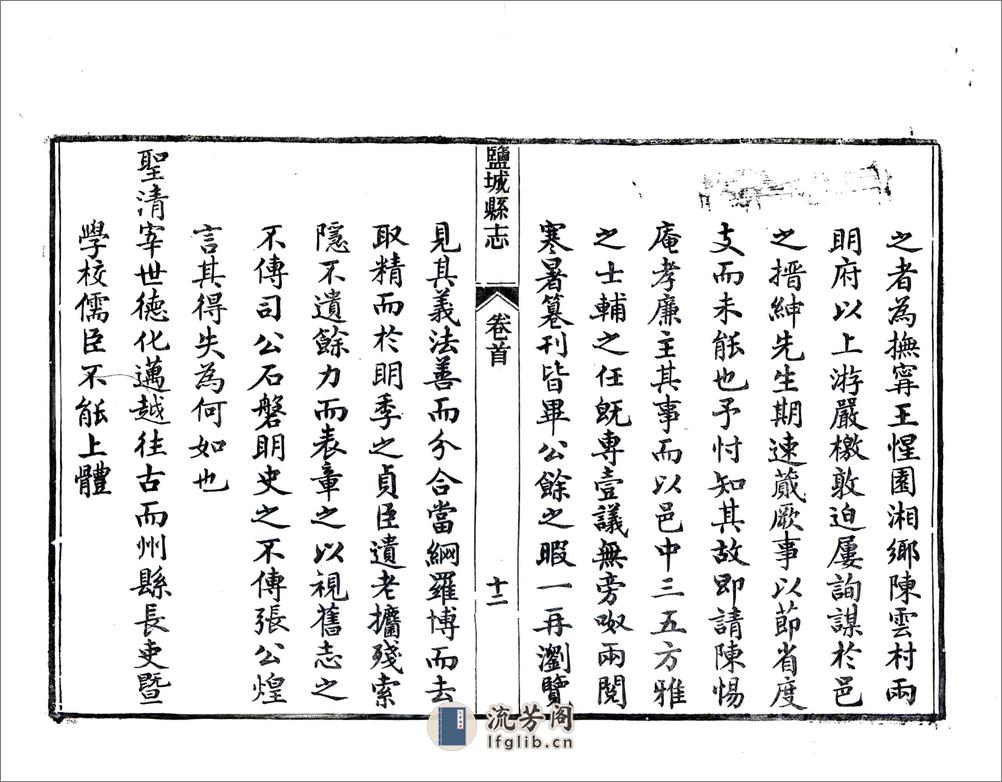 之者為撫甯王惺園湘鄉陳雲村兩
明府以上游嚴檄敦迫屢詢謀於邑
之搢紳先生期速蕆厥事以節省度
支而未能也予忖知其故即請陳惕
庵孝廉主其事而以邑中三五方雅
之士輔之任既專壹議無旁呶兩閱
寒暑纂刊皆畢公餘之暇一再瀏覽
鹽城縣志
卷首
十二
見其義法善而分合當綱羅博而去
取精而於明季之貞臣遺老攟殘索
隱不遺餘力而表章之以視舊志之
不傳司公石磐明史之不傳張公煌
言其得失為何如也
聖清宰世德化邁越往古而州縣長吏暨
學校儒臣不能上體
流芳阁
lfglib.cn